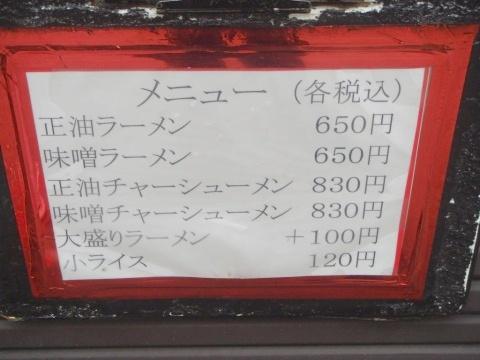 メニュー（各税込）
正油ラーメン 650円
味噌ラーメン 650円
正油チャーシューメン 830円
味噌チャーシューメン 830円
大盛りラーメン ＋100円
小ライス 120円